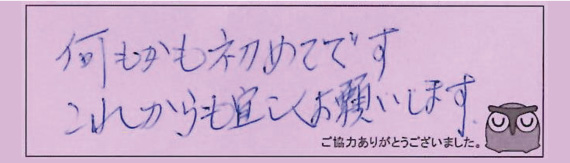 何もかも初めてです
これからも宜しくお願いします。
ご協力ありがとうございました。